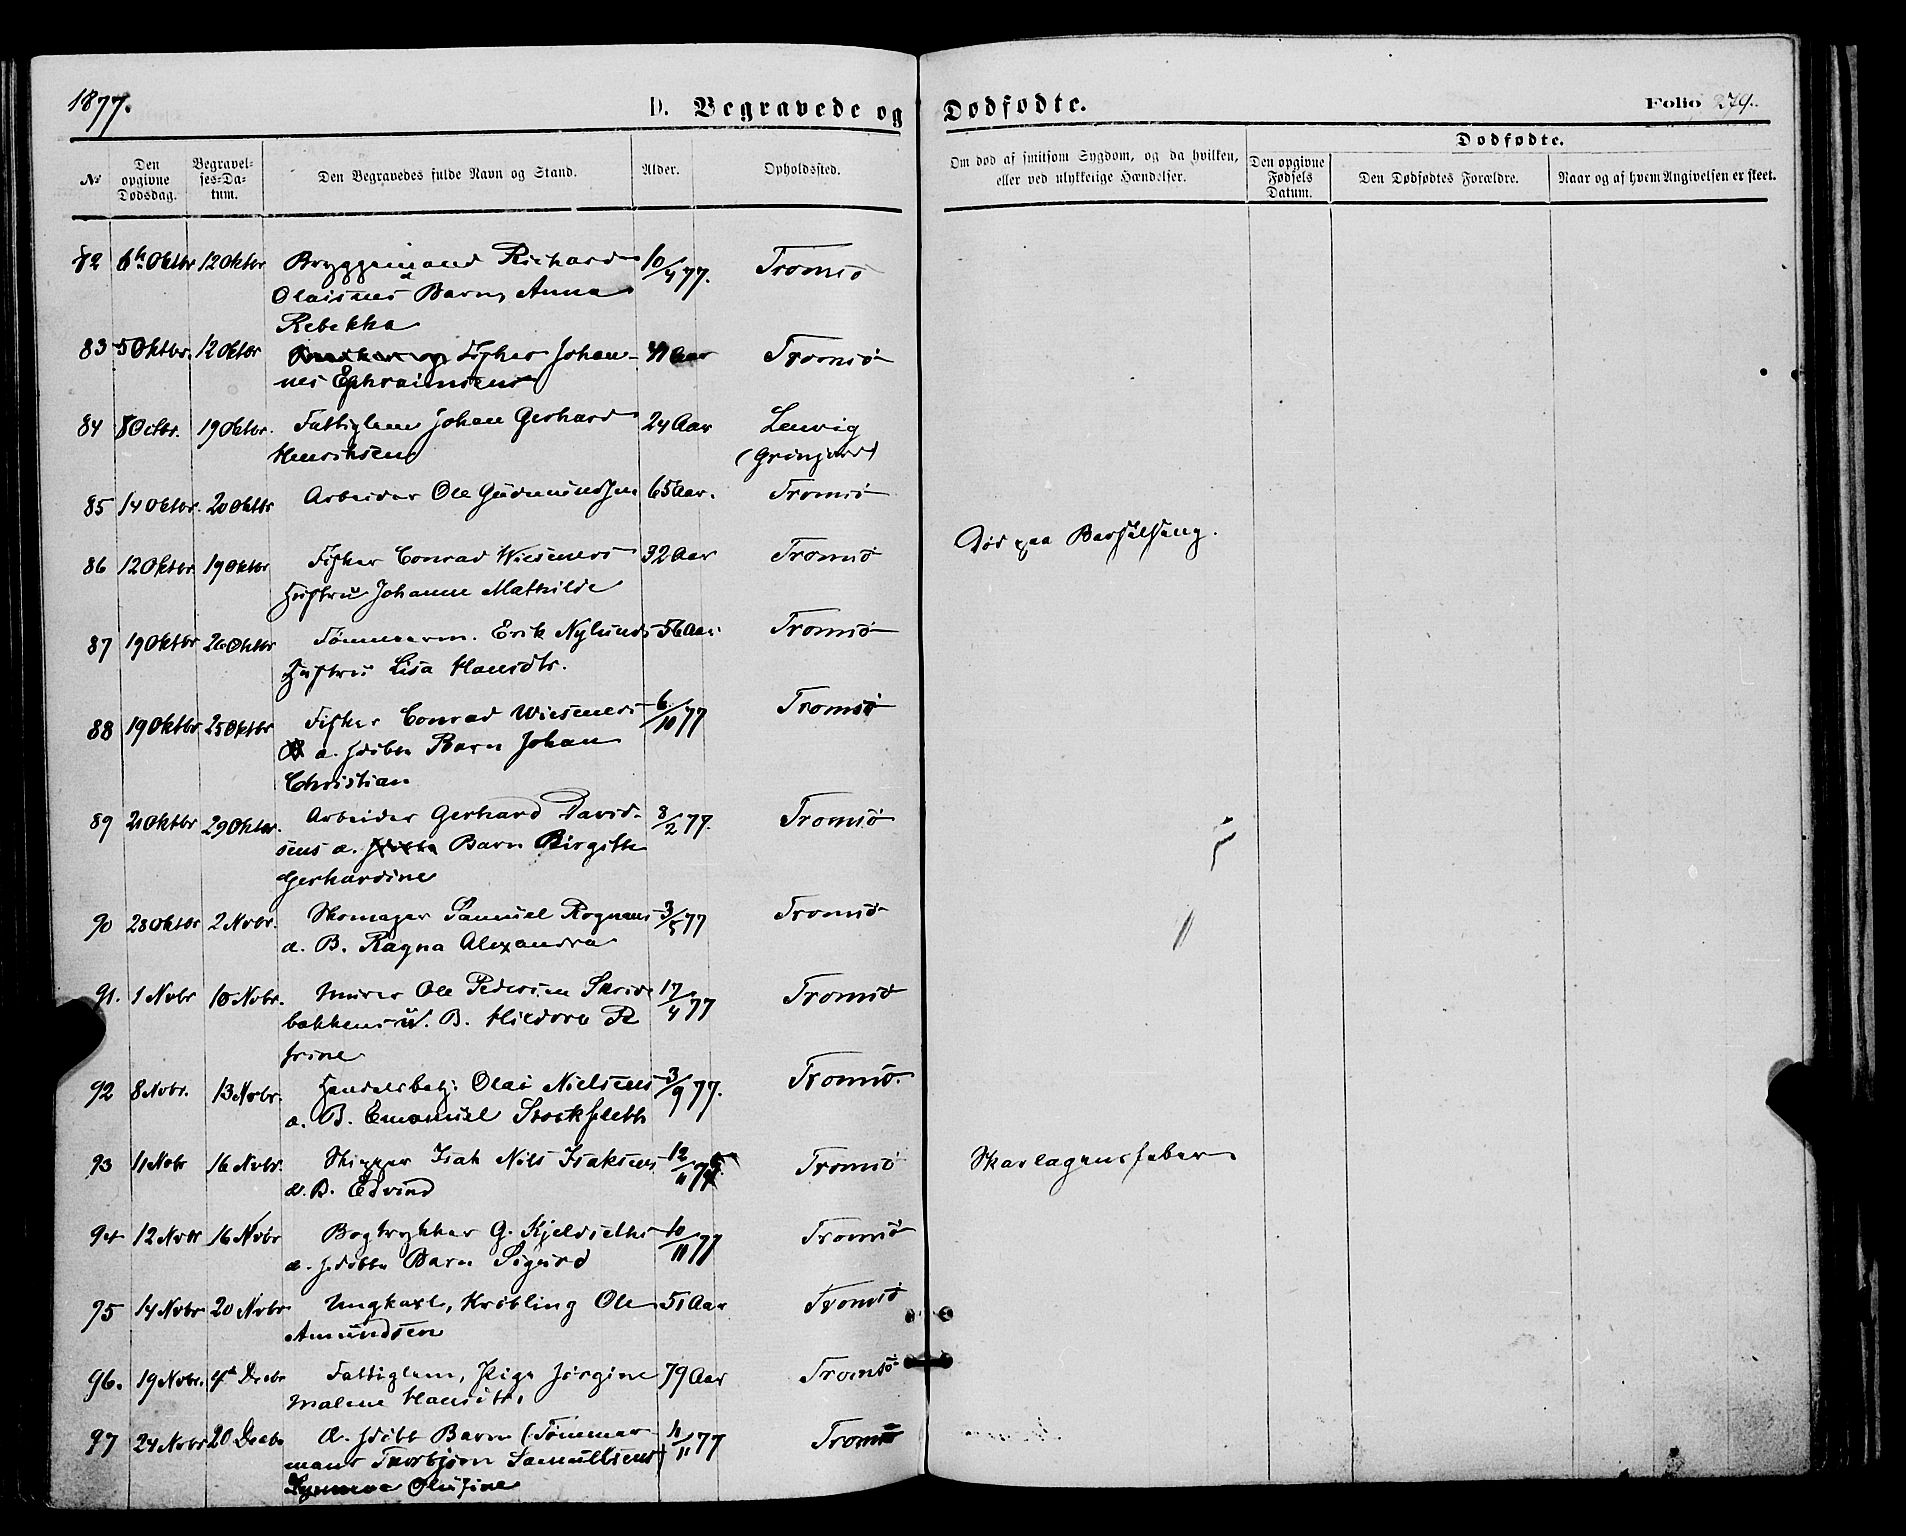 1877.
D. Begravede og Dødfødte.
Folio 279.
№
Den opgivne Dødsdag.
Begravelses-Datum.
Den Begravedes fulde Navn og Stand.
Alder.
Opholdssted.
Om død af smitsom Sygdom, og da hvilken, eller ved ulykkelige Hændelser.
Den opgivne Fødsels Datum.
Dødfødte.
Den Dødfødtes Forældre.
Naar og af hvem Angivelsen er skeet.
82 6te Oktbr 12 Oktbr Bryggemand Richard 10/4 77. Tromsø
Olaisens Barn, Anna
Rebekka
83 5 Oktbr. 12 Oktbr Fisker Johan- Aar Tromsø
nes Ephraimsen
84 8 Octbr. 19 Oktbr. Fattiglem Johan Gerhard 24 Aar Lenvig
Henriksen (Grinjord)
85 14 Oktbr. 20 Oktbr Arbeider Ole Gudmundsen 65 Aar. Tromsø
86 12 Oktbr 19 Oktbr Fisker Conrad Wiesmers 32 Aar Tromsø Død paa Barselseng.
Hustru Johanne Mathilde
87 19 Oktbr 26 Oktbr Tømmerm. Erik Nylunds 56 Aar Tromsø
Hustru Lisa Hansdtr.
88 19 Oktbr 25 Oktbr Fisker Conrad Wiesmers 6/10 77 Tromsø
a. fødte Barn Johan
Christian
89 21 Oktbr 29 Oktbr. Arbeider Gerhard David- 8/2 77. Tromsø
sens a. Barn Birgitte
Gerhardine
90 28 Oktbr 2 Novbr. Skomager Samuel Rognans 3/5 77 Tromsø
a. B. Ragna Alexandra
91. 1 Novbr 10 Novbr. Murer Ole Pedersen Skrive 17/4 77 Tromsø
bakkens B. Hildora P
frine
92 8 Novbr. 13 Novbr. Handelsbetj. Olai Nielsens 3/9 77. Tromsø.
a. B. Emanuel Stockfleth
93 11 Novbr 16 Novbr. Skipper Isak Nils Isaksens 12/11 Tromsø Skarlagensfeber
a. B. Edvind
94 12 Novbr 16 Novbr Bogtrykker G. Kjeldseths 10/11 77 Tromsø
a. fødte Barn Sigurd
95 14 Novbr 20 Novbr Ungkarl, Krøbling Ole 51 Aar Tromsø
Amundsen
96. 19 Novbr. 4de Decbr Fattiglem, Pige Jørgine 79 Aar Tromsø
Malene Hansdtr.
97 24 Novbr 20 Decbr Æ. født Barn (Tømmer- 11/11 77 Tromsø
mand Thorbjørn Samuelsens)
Synnøve Olufine